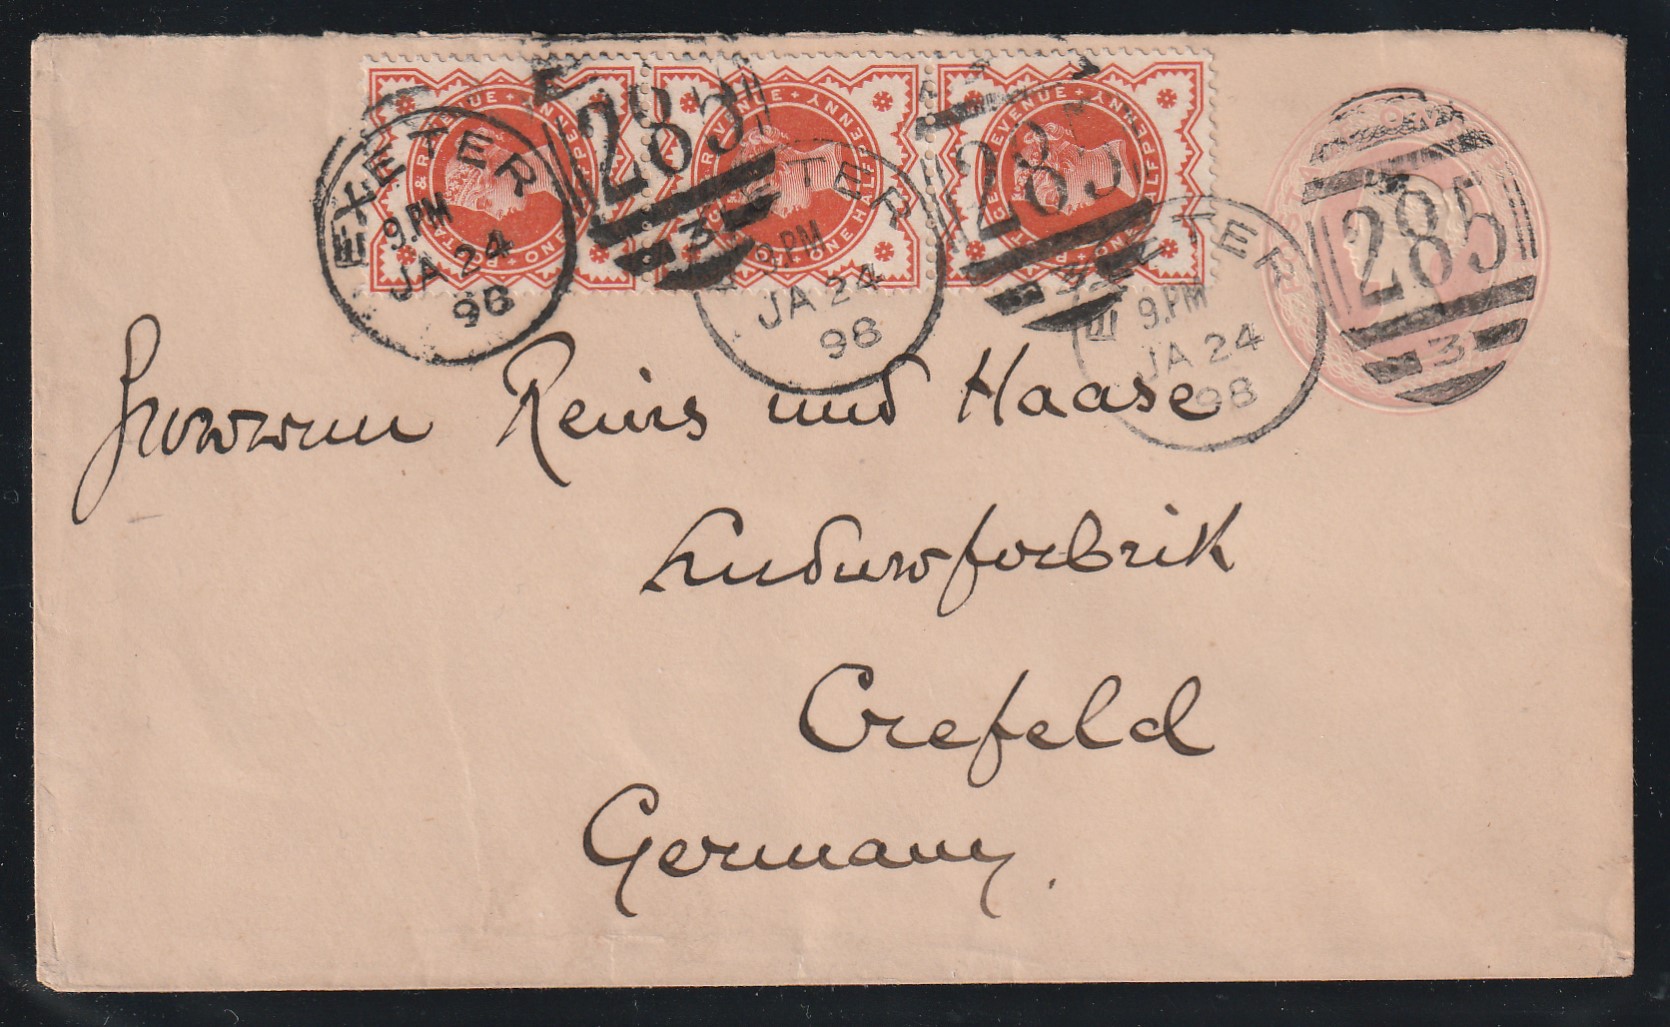 POSTAGE & REVENUE + ONE HALFPENNY +
POSTAGE & REVENUE + ONE HALFPENNY +
POSTAGE & REVENUE + ONE HALFPENNY +
EXETER
9.PM
JA 24
98
285
3
EXETER
9.PM
JA 24
98
285
3
EXETER
9.PM
JA 24
98
285
3
Reins und Haase
Crefeld
Germany.